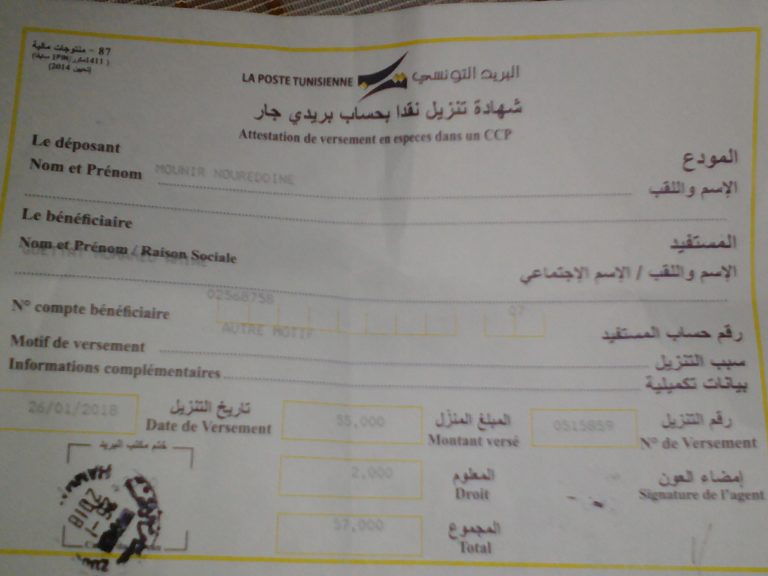 87 - منتوجات مالية
(تحيين 2014)
LA POSTE TUNISIENNE البريد التونسي
شهادة تنزيل نقدا بحساب بريدي جار
Attestation de versement en especes dans un CCP
Le déposant المودع
Nom et Prénom MOUNIR NOUREDDINE الإسم واللقب
Le bénéficiaire المستفيد
Nom et Prénom / Raison Sociale الإسم واللقب / الإسم الإجتماعي
MOHAMED
02568758 07
N° compte bénéficiaire رقم حساب المستفيد
AUTRE MOTIF
Motif de versement سبب التنزيل
Informations complémentaires بيانات تكميلية
26/01/2018 تاريخ التنزيل 55,000 المبلغ المنزّل 0515859 رقم التنزيل
Date de Versement Montant versé N° de Versement
ختم مكتب البريد
2,000 المعلوم إمضاء العون
Droit Signature de l'agent
57,000 المجموع
Total
2018